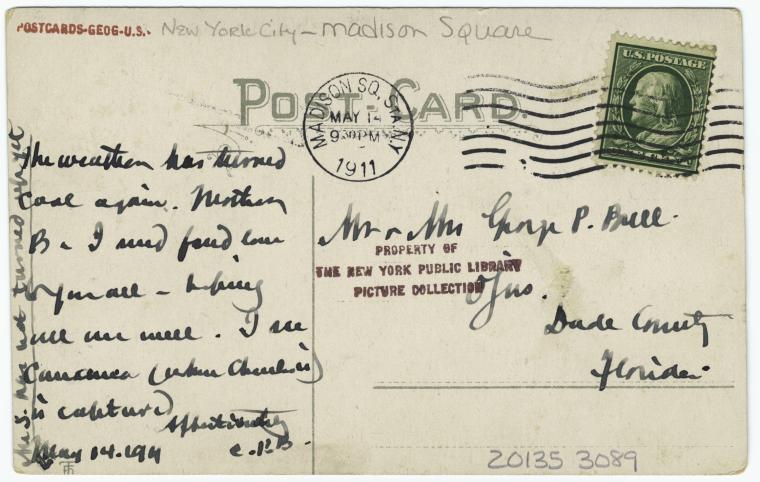 POSTCARDS-GEOG-U.S.- New York City - Madison Square
POST CARD.
MADISON SQ. STA. N.Y.
MAY 14
9 30 PM
1911
U.S. POSTAGE
The weather has turned
cool again. Mother
B & I send fond love
to you all - hoping
all are well. I see
Cananea (where Charlie is)
is captured
Affectionately
May 14. 1911 C.P.B.
not turned up yet
Mr & Mrs George P. Bull.
PROPERTY OF
THE NEW YORK PUBLIC LIBRARY
PICTURE COLLECTION
Ojus.
Dade County
Florida.
20135 3089